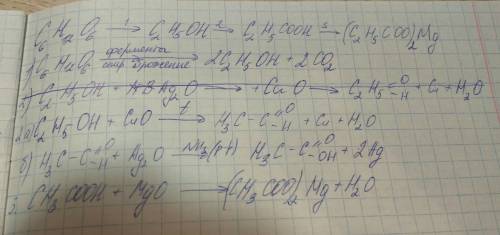 C₆H₁₂O₆ —1→ C₂H₅OH —2→ C₂H₅COOH —3→ (C₂H₅COO)₂Mg
1) C₆H₁₂O₆ —ферменты спир. брожение→ 2C₂H₅OH + 2CO₂
2) C₂H₅OH + Ag₂O → + CuO → C₂H₅=O-H + Cu + H₂O
2 а) C₂H₅-OH + CuO —t→ H₃C-C=O-H + Cu + H₂O
б) H₃C-C=O-H + Ag₂O —NH₃(р-р)→ H₃C-C=O-OH + 2Ag
3. CH₃COOH + MgO → (CH₃COO)₂Mg + H₂O